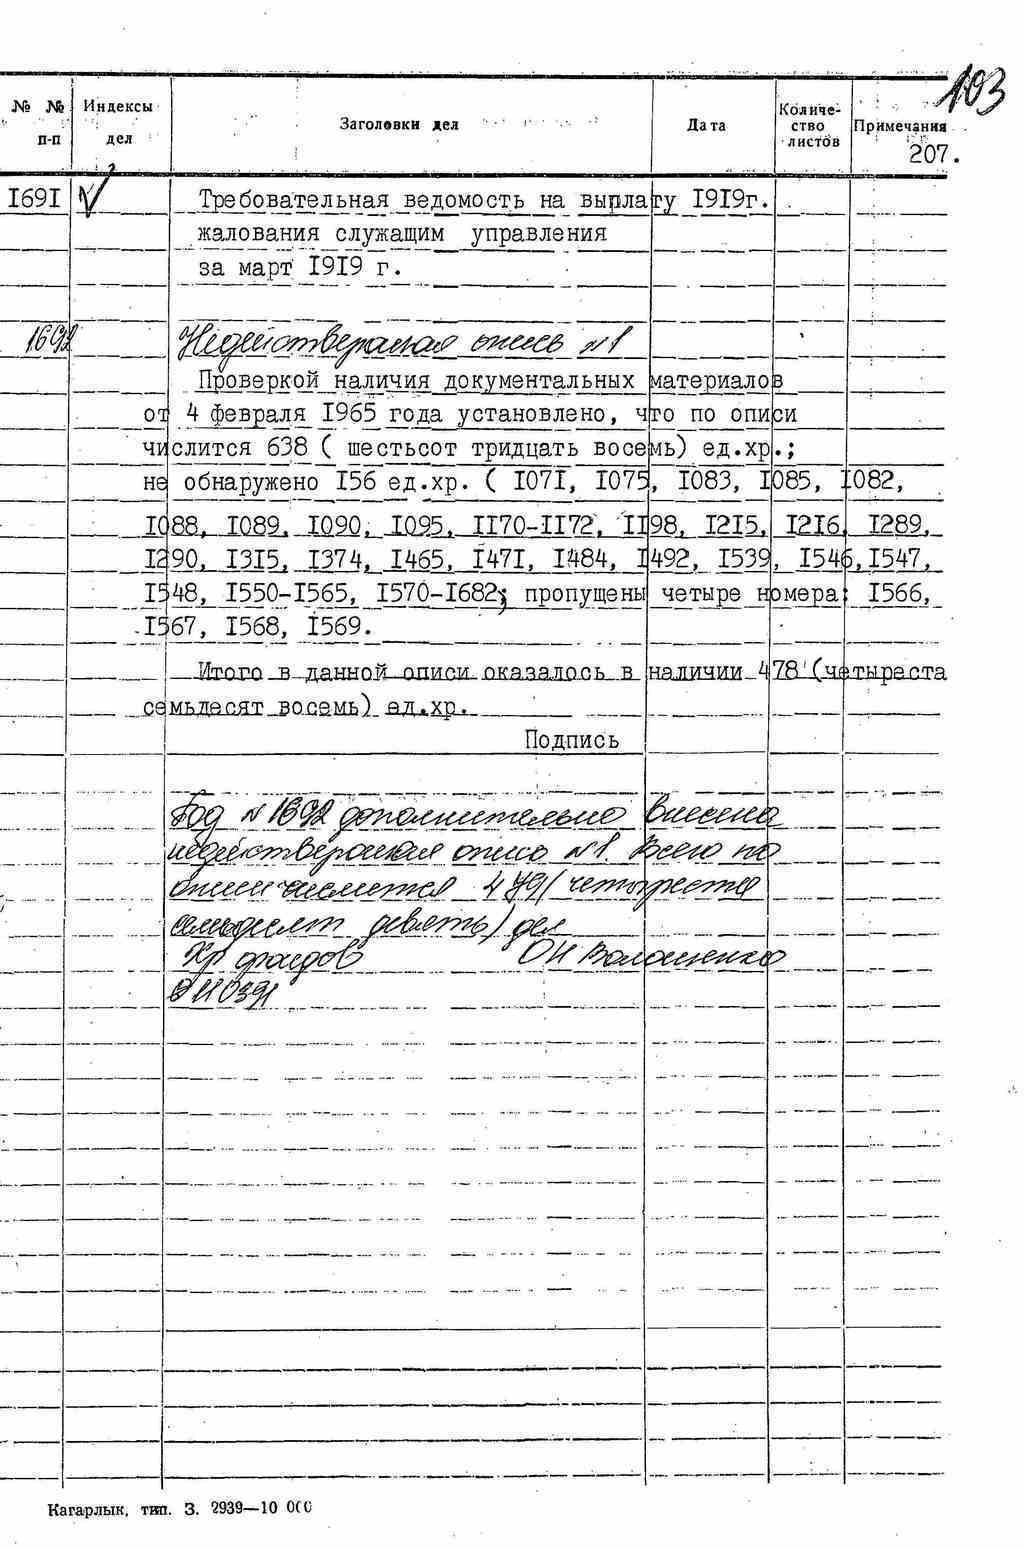 103
№ № п-п Индексы дел Заголовки дел Дата Количе-ство листов Примечания
207.
1691 Требовательная ведомость на выплату 1919г.
жалования служащим управления
за март 1919 г.
1692 Недействующая опись №1
Проверкой наличия документальных материалов
от 4 февраля 1965 года установлено, что по описи
числится 638 ( шестьсот тридцать восемь) ед.хр.;
не обнаружено 156 ед.хр. ( 1071, 1075, 1083, 1085, 1082,
1088, 1089, 1090, 1095, 1170-1172, 1198, 1215, 1216, 1289,
1290, 1315, 1374, 1465, 1471, 1484, 1492, 1539, 1546,1547,
1548, 1550-1565, 1570-1682; пропущены четыре номера: 1566,
1567, 1568, 1569.
Итого в данной описи оказалось в наличии 478 (четыреста
семьдесят восемь) ед.хр.
Подпись
Под №1692 дополнительно внесена
опись №1. Всего по
описи числится 479 (четыреста
семьдесят девять) дел
Хр фондов ОН Волошенко
Кагарлык, тип. З. 2939—10 000